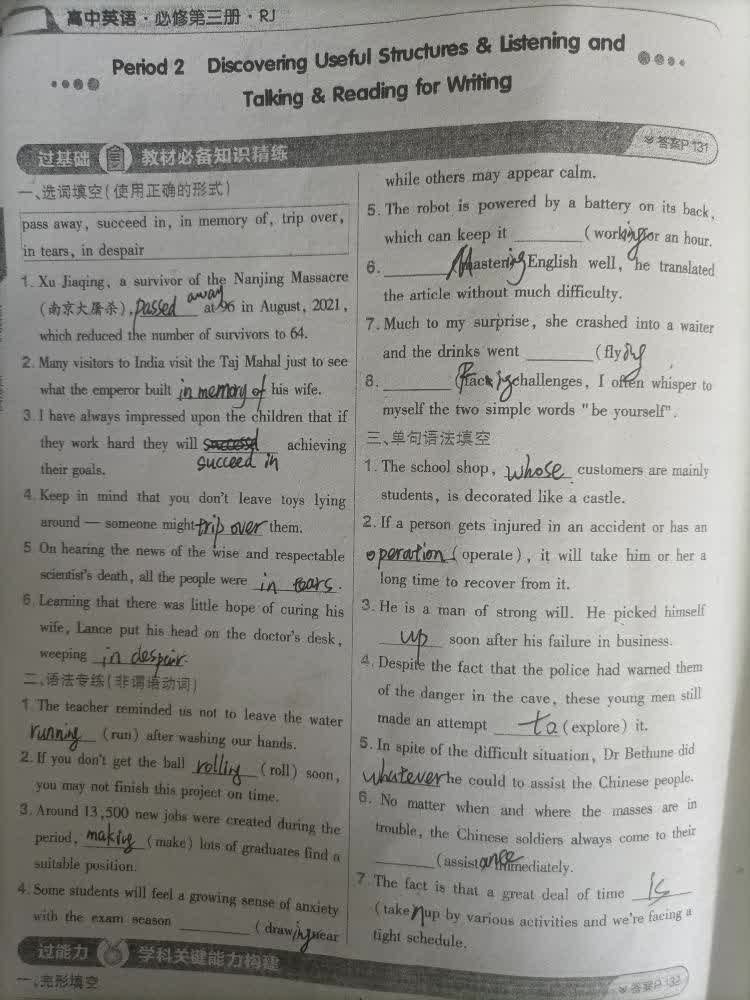 高中英语·必修第三册·RJ
Period 2 Discovering Useful Structures & Listening and
Talking & Reading for Writing
过基础 教材必备知识精练
答案P 131
一、选词填空(使用正确的形式)
pass away, succeed in, in memory of, trip over,
in tears, in despair
1. Xu Jiaqing, a survivor of the Nanjing Massacre
(南京大屠杀), passed away at 96 in August, 2021,
which reduced the number of survivors to 64.
2. Many visitors to India visit the Taj Mahal just to see
what the emperor built in memory of his wife.
3. I have always impressed upon the children that if
they work hard they will succeed in achieving
their goals.
4. Keep in mind that you don't leave toys lying
around — someone might trip over them.
5 On hearing the news of the wise and respectable
scientist's death, all the people were in tears.
6. Learning that there was little hope of curing his
wife, Lance put his head on the doctor's desk,
weeping in despair.
二、语法专练(非谓语动词)
1. The teacher reminded us not to leave the water
running (run) after washing our hands.
2. If you don't get the ball rolling (roll) soon,
you may not finish this project on time.
3. Around 13,500 new jobs were created during the
period, making (make) lots of graduates find a
suitable position.
4. Some students will feel a growing sense of anxiety
with the exam season ______ (drawing near
while others may appear calm.
5. The robot is powered by a battery on its back,
which can keep it ______ (working for an hour.
6. ______ Mastering English well, he translated
the article without much difficulty.
7. Much to my surprise, she crashed into a waiter
and the drinks went ______ (flying
8. ______ (Facing challenges, I often whisper to
myself the two simple words "be yourself".
三、单句语法填空
1. The school shop, whose customers are mainly
students, is decorated like a castle.
2. If a person gets injured in an accident or has an
operation (operate), it will take him or her a
long time to recover from it.
3. He is a man of strong will. He picked himself
up soon after his failure in business.
4. Despite the fact that the police had warned them
of the danger in the cave, these young men still
made an attempt to (explore) it.
5. In spite of the difficult situation, Dr Bethune did
whatever he could to assist the Chinese people.
6. No matter when and where the masses are in
trouble, the Chinese soldiers always come to their
______ (assistance immediately.
7 The fact is that a great deal of time is
(taken up by various activities and we're facing a
tight schedule.
过能力 学科关键能力构建
一、完形填空
答案P 132